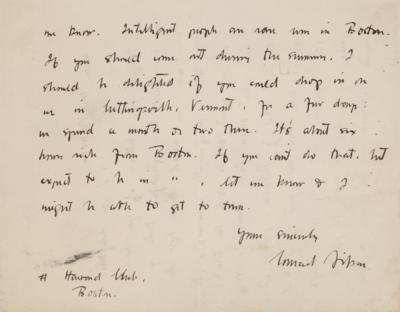 me know. Intelligent people are rare now in Boston.
If you should come out during the summer, I
should be delighted if you could drop in on
us in Cuttingsville, Vermont, for a few days:
we spend a month or two there. It's about six
hours ride from Boston. If you can't do that, but
expect to be in " " let me know & I
might be able to get to town.
Yours sincerely
Conrad Aiken
Harvard Club,
Boston.